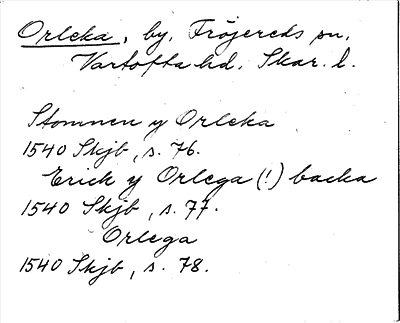 Orleka, by, Fröjereds sn,
Vartofta hd, Skar. l.
Stomnen y Orleka
1540 Skjb, s. 76.
Erick y Orlega (!) backa
1540 Skjb, s. 77.
Orlega
1540 Skjb, s. 78.